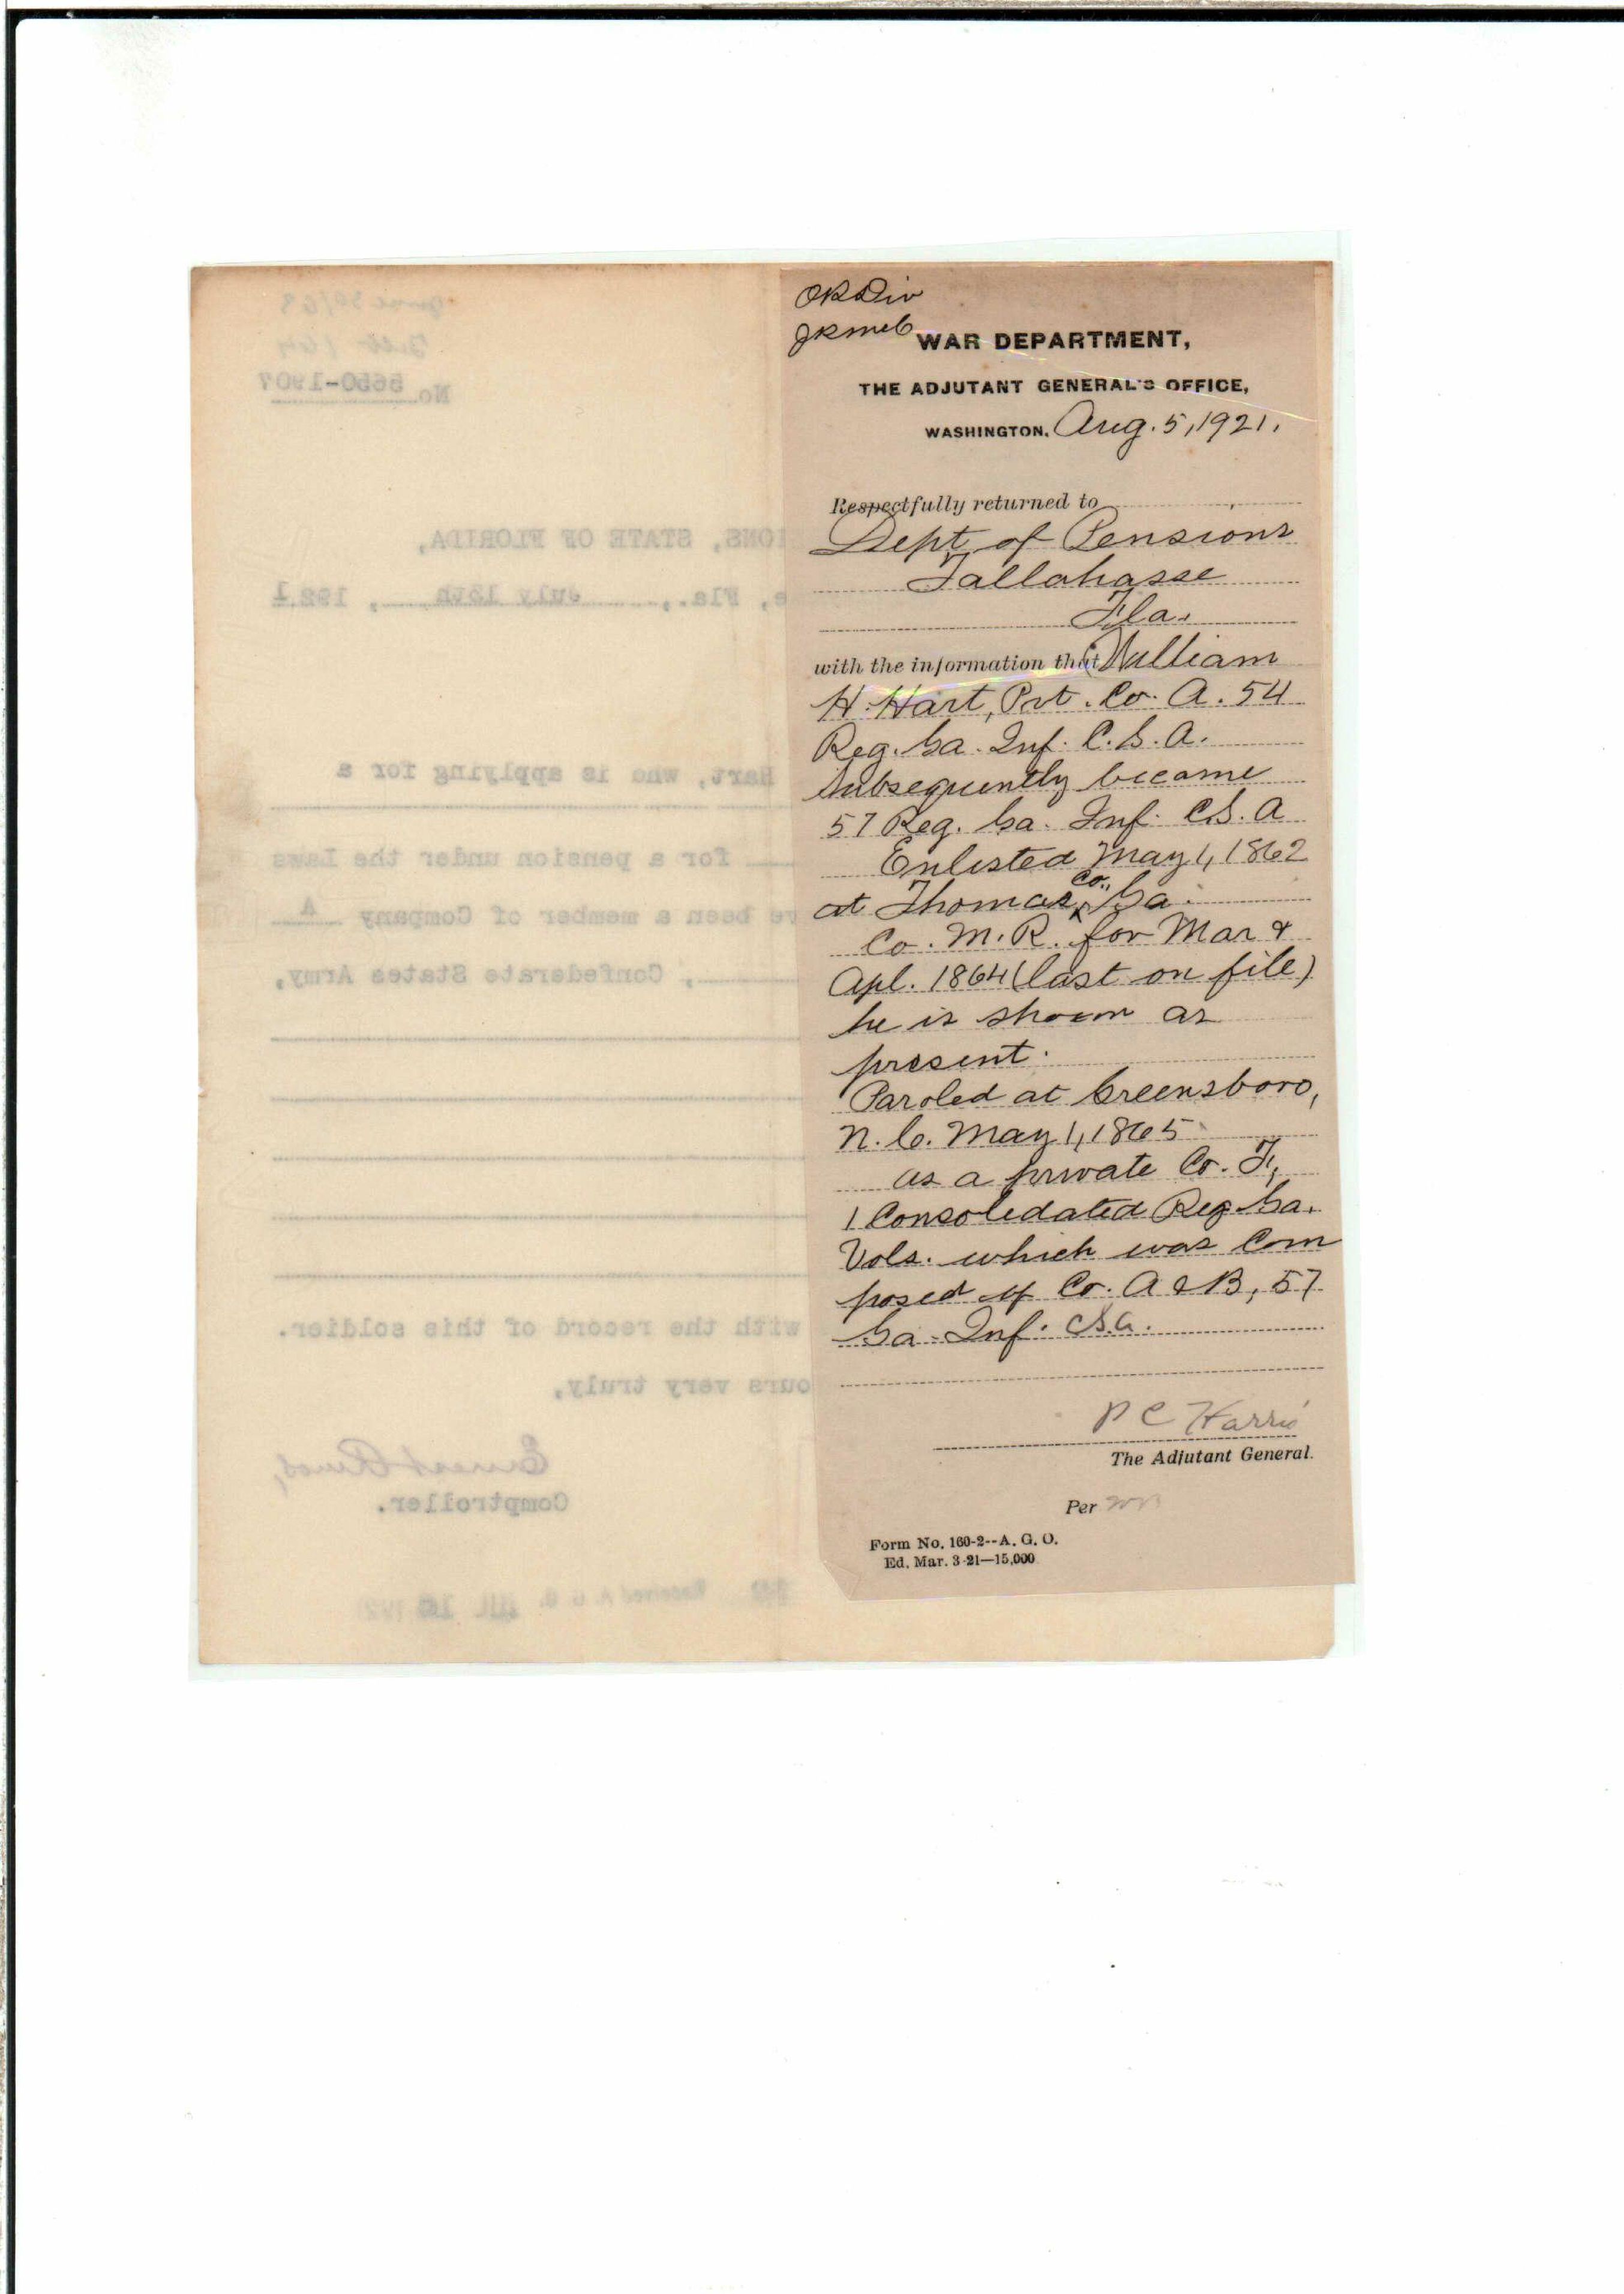 OR Div
WAR DEPARTMENT,
THE ADJUTANT GENERAL'S OFFICE,
WASHINGTON, Aug. 5, 1921.
Respectfully returned to
Dept of Pensions
Tallahasse
Fla.
with the information that William
H. Hart, Pvt. Co. A. 54
Reg. Ga. Inf. C.S.A.
subsequently became
57 Reg. Ga. Inf. C.S.A
Enlisted May 1, 1862
at Thomas Co., Ga.
Co. M.R. for Mar &
Apl. 1864 (last on file)
he is shown as
present.
Paroled at Greensboro,
N.C. May 1, 1865
as a private Co. F,
1 Consoledated Reg Ga.
Vols. which was Com
posed of Co. A & B, 57
Ga. Inf. C.S.A.
P C Harris
The Adjutant General.
Per
Form No. 160-2--A. G. O.
Ed. Mar. 3-21—15,000
No. 5650-1907
IONS, STATE OF FLORIDA,
e, Fla., July 15th, 1921
Hart, who is applying for a
for a pension under the Laws
ve been a member of Company A
, Confederate States Army,
with the record of this soldier.
ours very truly,
Ernest Amos,
Comptroller.
Received A. G. O. JUL 16 1921